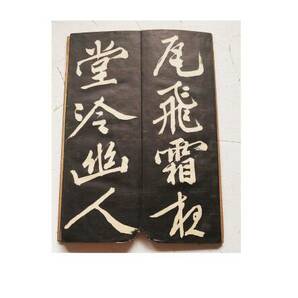 尾飛霜
堂冷幽人